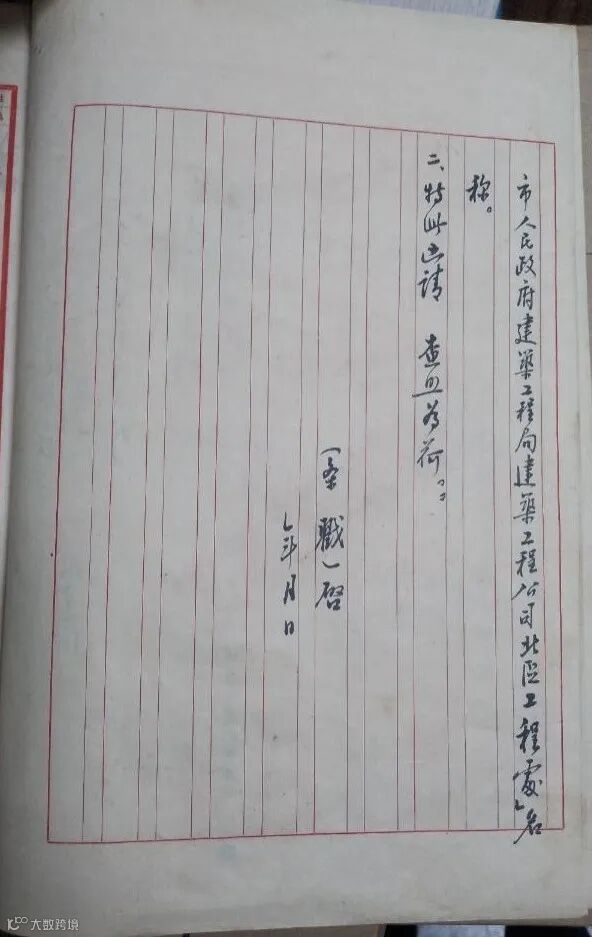 市人民政府建築工程局建築工程公司北區工程處」名
稱。
二、特此函請 查照為荷。」
（条戳）啓
年 月 日
大数跨境